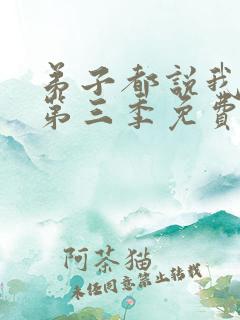 弟子都説我
第三季免費
阿茶猫
未经同意禁止转载